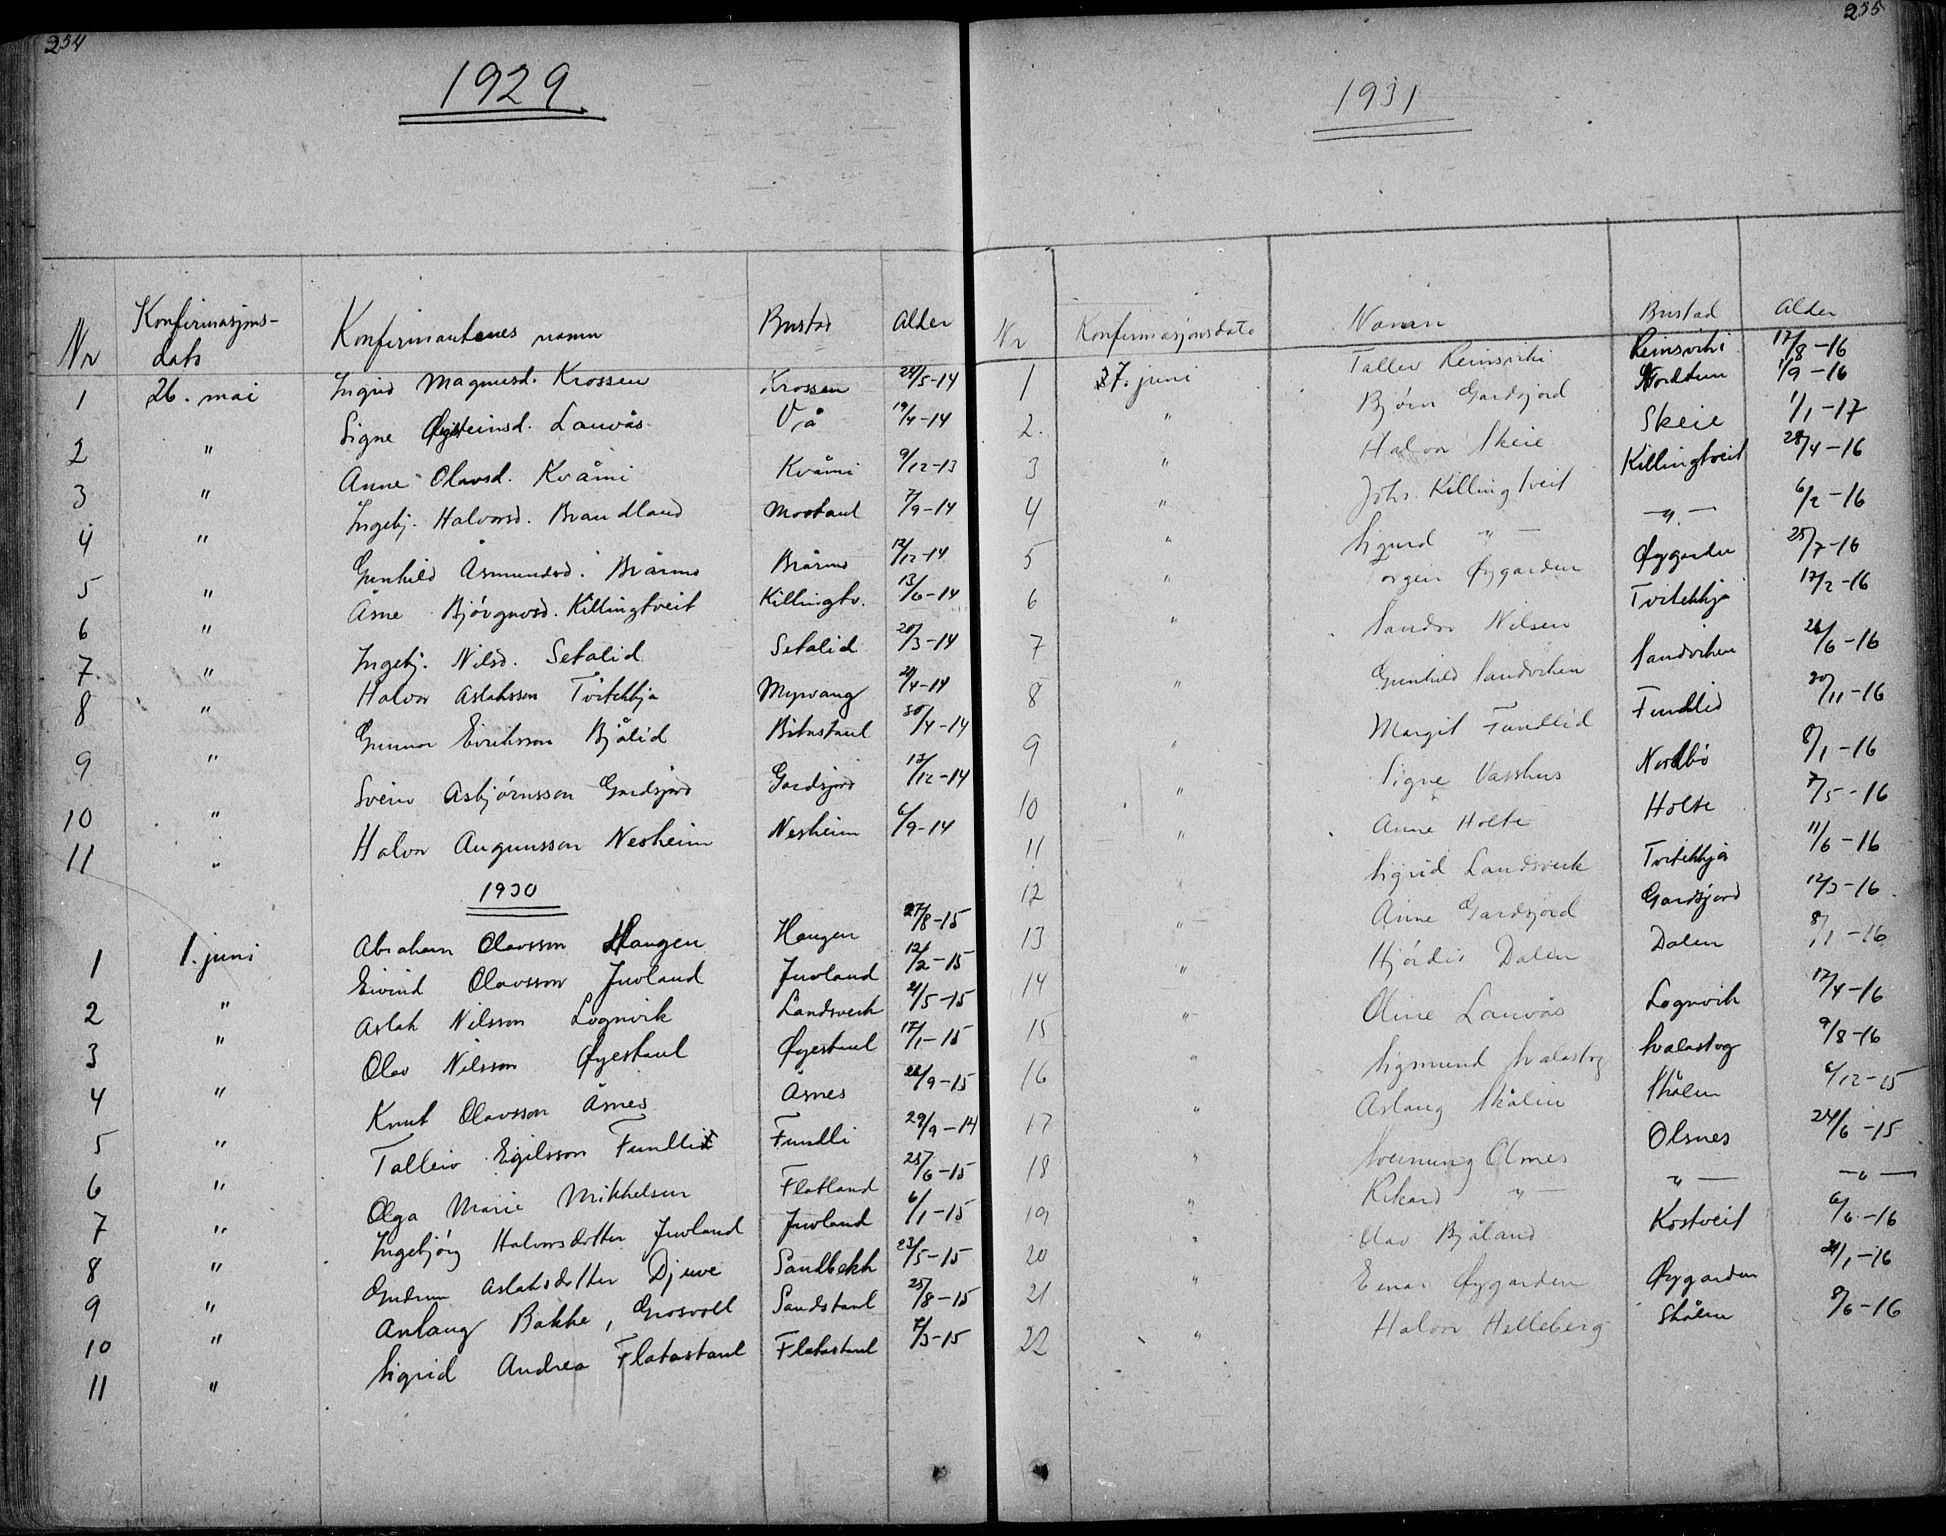 254
1929
Nr Konfirmasjons-dato Konfirmantenes namn Bustad Alder
1 26. mai Ingrid Magnusd. Krossen Krossen 24/5-14
2 " Signe Øysteinsd. Lauvås Vå 19/4-14
3 " Anne Olavsd. Kvåmi Kvåmi 9/12-13
4 " Ingebj. Halvorsd. Brandland 7/9-14
5 " Gunhild Åsmundsd. 12/12-14
6 " Åsne Bjørgnvsd. Killingtveit Killingtv. 13/6-14
7 " Ingebj. Nilsd. Setalid Setalid 20/3-14
8 " Halvor Aslaksson Tvitekkja Myrvang 24/4-14
9 " Gunnar Eiriksson Bjålid Bitustaul 30/4-14
10 " Svein Asbjørnsson Gardsjord Gardsjord 12/12-14
11 " Halvor Augunsson Nesheim Nesheim 6/9-14
1930
1 1. juni Abraham Olavsson Haugen Haugen 27/8-15
2 " Eivind Olavsson Juvland Juvland 12/2-15
3 " Aslak Nilsson Lognvik Landsverk 21/5-15
4 " Olav Nilsson Øyestaul Øyestaul 17/1-15
5 " Knut Olavsson Åsnes Åsnes 26/9-15
6 "Талleiv Egilsson Fundli Fundli 29/9-14
7 " Olga Marie Mikkelsen Flatland 25/6-15
8 " Ingebjørg Halvorsdotter Juvland Juvland 6/1-15
9 " Gudrun Aslaksdotter Djuve Sandbekk 23/5-15
10 " Anlaug Bakke, Grosvoll Sandstaul 25/8-15
11 " Sigrid Andrea Flatastaul Flatastaul 7/3-15
255
1931
Nr Konfirmasjonsdato Namn Bustad Alder
1 27. juni Tallev Reinsviki Reinsviki 17/8-16
2. " Bjørn Gardsjord Nordtun 1/9-16
3 " Halvor Skeie Skeie 1/1-17
4 " Johs. Killingtveit Killingtveit 28/4-16
5 " Sigurd " — —"— 6/2-16
6 " Torgeir Øygarden Øygarden 25/7-16
7 " Sandor Nilsen Tvitekkja 12/2-16
8 " Gunhild Sandviken Sandviken 26/6-16
9 " Margit Fundlid Fundlid 20/11-16
10 " Signe Vasshus Nordbø 8/1-16
11 " Anne Holte Holte 7/5-16
12 " Sigrid Landsverk Tvitekkja 11/6-16
13 " Anne Gardsjord Gardsjord 12/3-16
14 " Hjørdis Dalen Dalen 8/11-16
15 " Oline Lauvås Lognvik 17/4-16
16 " Sigmund Svalastog Svalastog 9/8-16
17 " Aslaug Skålin Skålin 6/12-15
18 " Sveinung Olsnes Olsnes 24/6-15
19 " Rikard " — " — —"—
20 " Olav Bjåland Kostveit 6/6-16
21 " Einar Øygarden Øygarden 21/1-16
22 " Halvor Helleberg Skålin 8/6-16